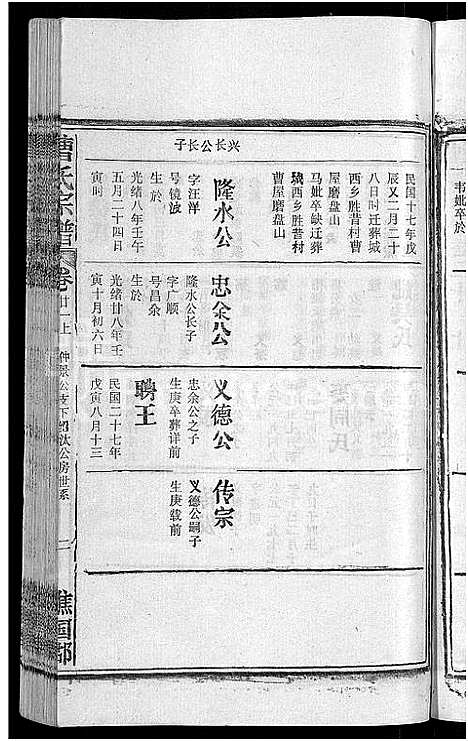 兴长公长子
民国十七年戊
辰又二月二十
八日时迁葬城
西乡胜昔村曹
屋磨盘山
马妣卒缺迁葬
城西乡胜昔村
曹屋磨盘山
隆水公
字汪洋
号镜波
生於
光绪八年壬午
五月二十四日
寅时
忠余公
隆水公长子
字广顺
号昌余
生於
光绪廿八年壬
寅十月初六日
义德公
忠余公之子
生庚卒葬详前
聘王
民国二十七年
戊寅八月十三
传宗
义德公嗣子
生庚载前
曹氏宗谱
卷廿一上
仲景公支下绍汰公房世系
二
谯国郡
韦妣卒於